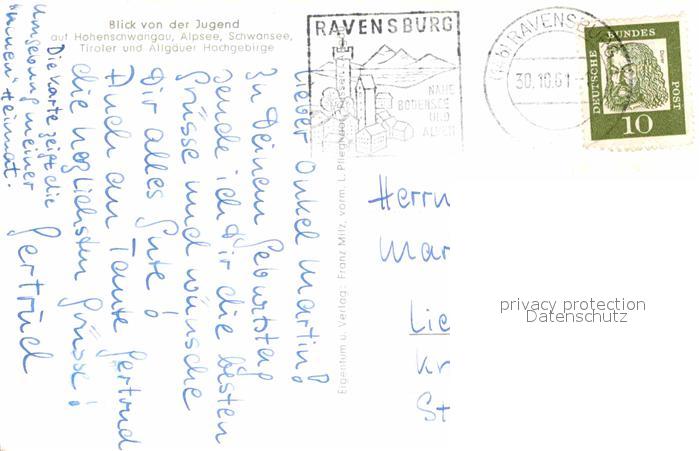 Blick von der Jugend
auf Hohenschwangau, Alpsee, Schwansee,
Tiroler und Allgäuer Hochgebirge
RAVENSBURG
NAHE
BODENSEE
UND
ALPEN
RAVENSBURG
30.10.61
DEUTSCHE BUNDESPOST
Dürer
10
Lieber Onkel Martin!
Zu Deinem Geburtstag
sende ich Dir die besten
Grüsse und wünsche
Dir alles Gute!
Auch an Tante Gertrud
die herzlichsten Grüsse!
Gertrud
Die Karte zeigt die
Umgebung meiner
"Heimat.
Eigentum u. Verlag: Franz Milz, vorm. L. Pflegh
Herrn
Mar
Lie
Kr
St
privacy protection
Datenschutz